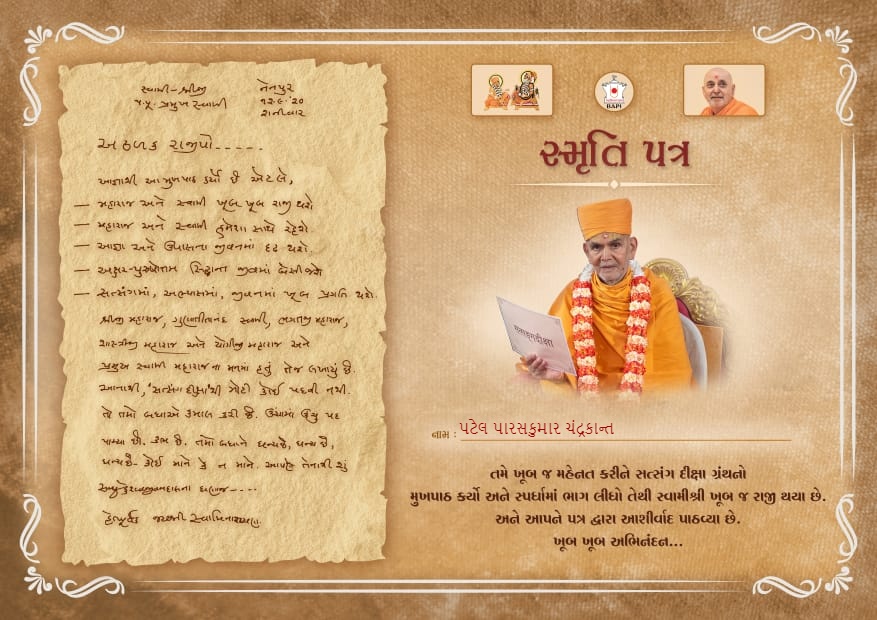 સ્વામી-શ્રીજી
નેનપુર
પ.પૂ. પ્રમુખ સ્વામી
૧૨.૯.'૨૦
શનીવાર
અઢળક રાજીપો.....
આજ્ઞાથી આ મુખપાઠ કર્યો છે એટલે,
— મહારાજ અને સ્વામી ખૂબ ખૂબ રાજી થશે
— મહારાજ અને સ્વામી હંમેશા સાથે રહેશે.
— આજ્ઞા અને ઉપાસના જીવનમાં દૃઢ થશે.
— અક્ષર-પુરુષોત્તમ સિદ્ધાંત જીવમાં બેસી જશે
— સત્સંગમાં, અભ્યાસમાં, જીવનમાં ખૂબ પ્રગતિ થશે.
શ્રીજી મહારાજ, ગુણાતીતાનંદ સ્વામી, ભગતજી મહારાજ,
શાસ્ત્રીજી મહારાજ અને યોગીજી મહારાજ અને
પ્રમુખ સ્વામી મહારાજના મનમાં હતું તેજ લખાયું છે.
આનાથી, 'સત્સંગ દીક્ષા'થી મોટી કોઈ પદવી નથી.
તો તમો બધાએ કમાલ કરી છે. ઉંચામાં ઉંચુ પદ
પામ્યા છો. તમો બધાને ધન્ય છે, ધન્ય છે,
ધન્ય છે- કોઈ માને કે ન માને. આપણે તેનાથી શું
જયશ્રી સ્વામિનારાયણ.
BAPS
સ્મૃતિ પત્ર
સત્સંગદીક્ષા
નામ : પટેલ પારસકુમાર ચંદ્રકાન્ત
તમે ખૂબ જ મહેનત કરીને સત્સંગ દીક્ષા ગ્રંથનો
મુખપાઠ કર્યો અને સ્પર્ધામાં ભાગ લીધો તેથી સ્વામીશ્રી ખૂબ જ રાજી થયા છે.
અને આપને પત્ર દ્વારા આશીર્વાદ પાઠવ્યા છે.
ખૂબ ખૂબ અભિનંદન...